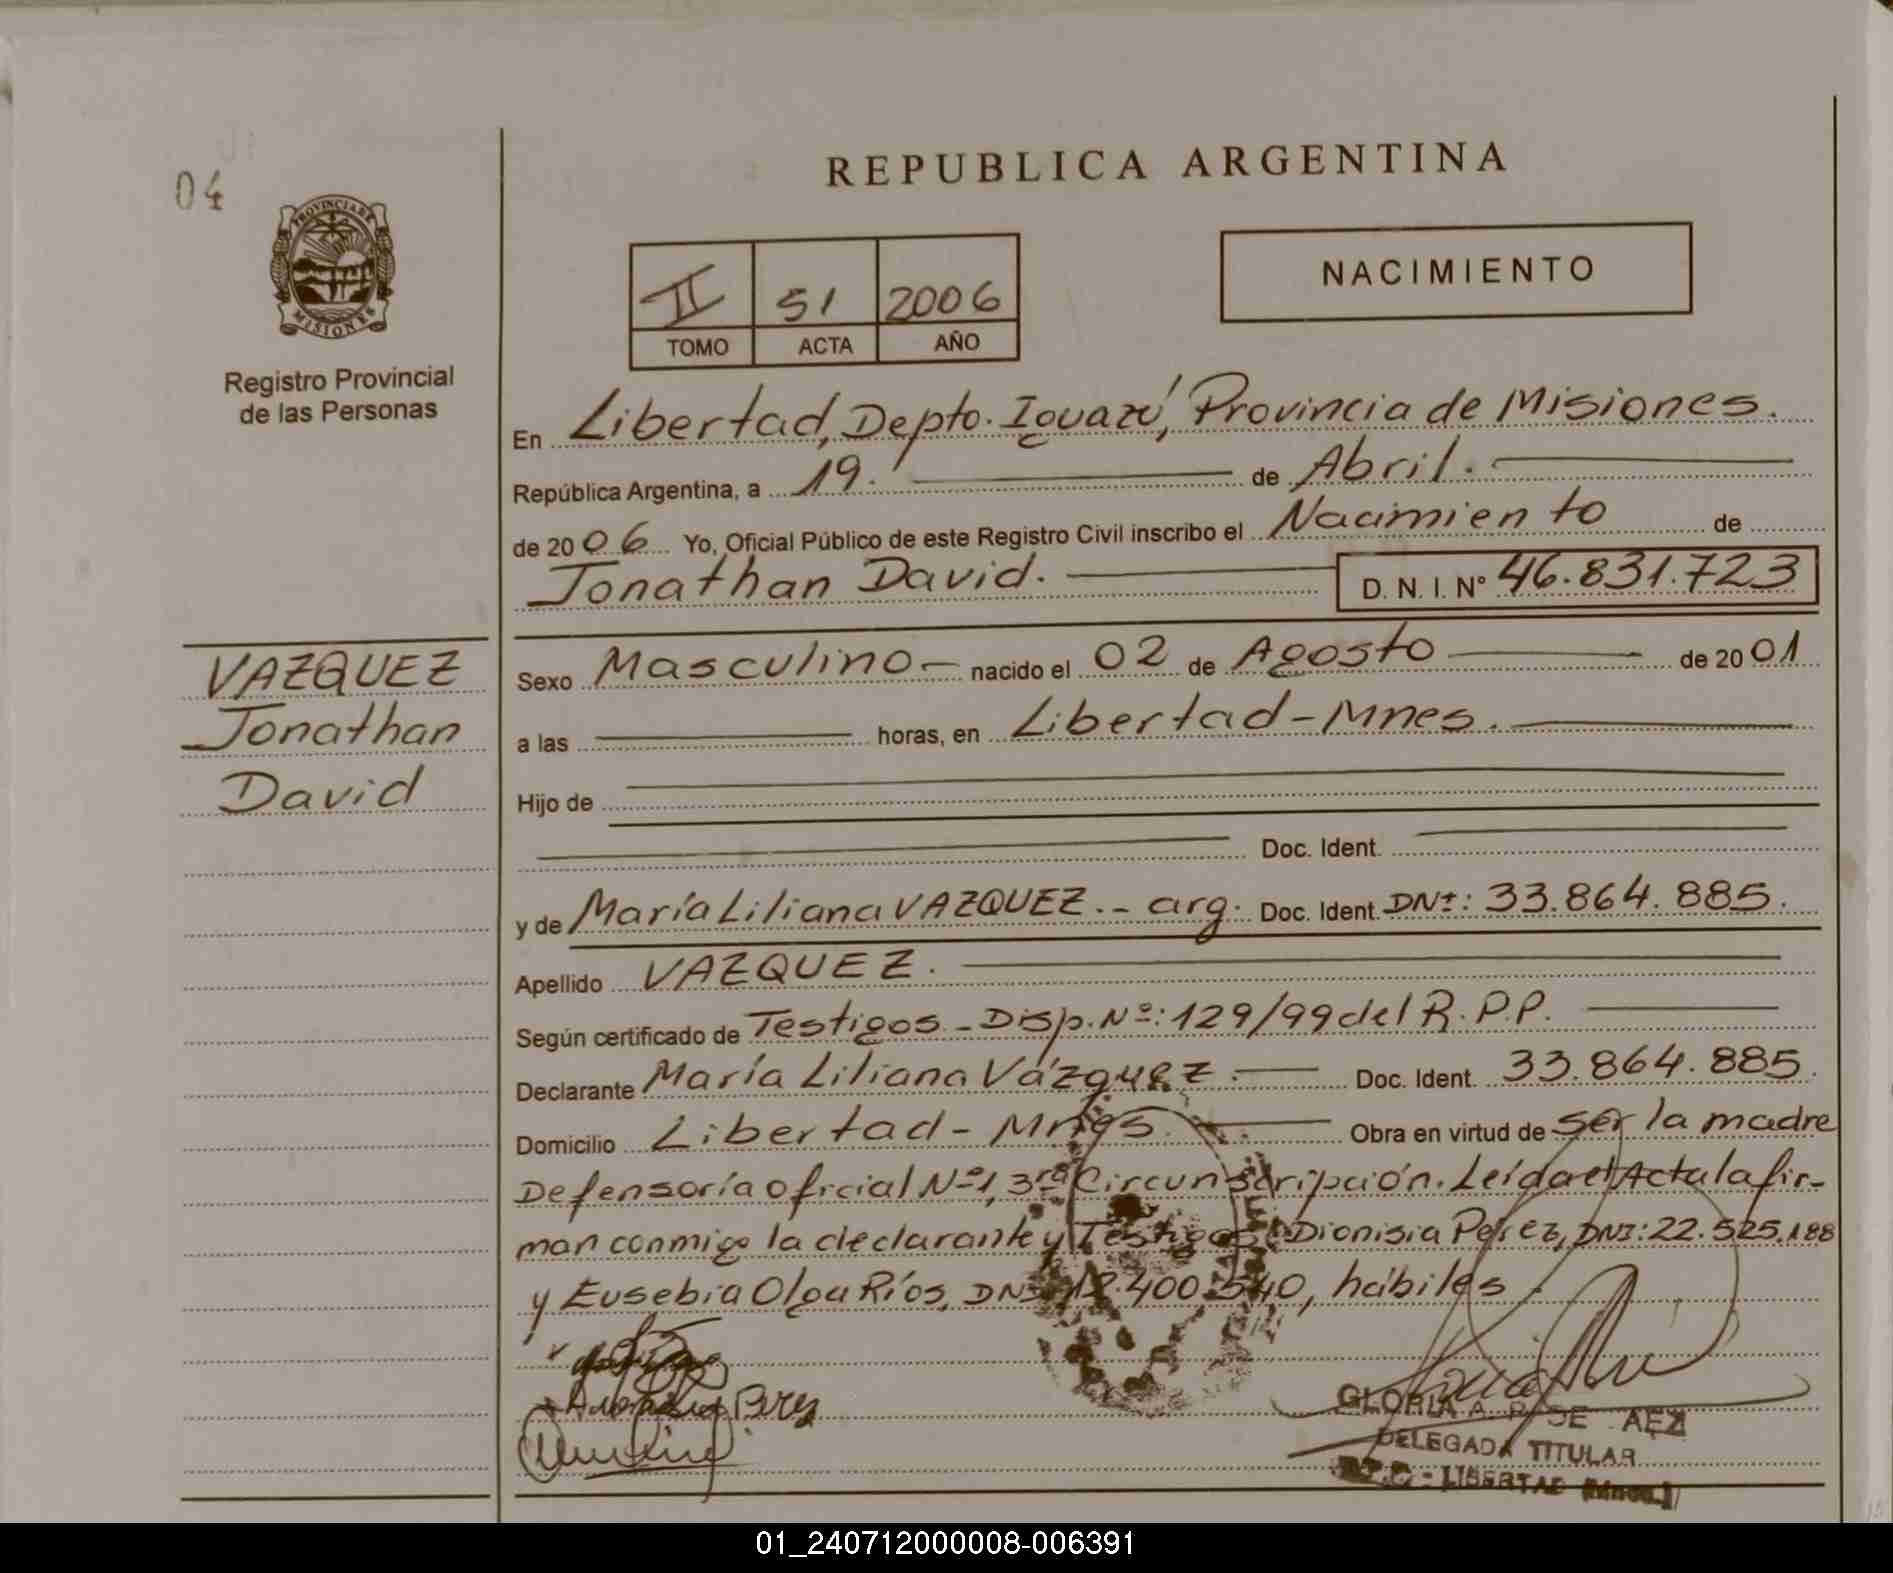 04
PROVINCIA DE
MISIONES
Registro Provincial
de las Personas
REPUBLICA ARGENTINA
II 51 2006
TOMO ACTA AÑO
NACIMIENTO
En Libertad, Depto. Iguazú, Provincia de Misiones.
República Argentina, a 19. de Abril.
de 2006 Yo, Oficial Público de este Registro Civil inscribo el Nacimiento de
Jonathan David. D. N. I. Nº 46.831.723
VAZQUEZ
Jonathan
David
Sexo Masculino nacido el 02 de Agosto de 2001
a las horas, en Libertad - Mnes.
Hijo de
Doc. Ident.
y de María Liliana VAZQUEZ.- arg. Doc. Ident. DNI: 33.864.885.
Apellido VAZQUEZ.
Según certificado de Testigos - Disp. Nº: 129/99 del R.P.P.
Declarante María Liliana Vázquez. Doc. Ident. 33.864.885.
Domicilio Libertad - Mnes. Obra en virtud de ser la madre
Defensoría oficial Nº1, 3ra Circunscripción. Leída el Acta la fir-
man conmigo la declarante y Testigos: Dionisia Perez, DNI: 22.525.188
y Eusebia Olga Ríos, DNI 12.400.540, hábiles
Perez
GLORIA A. DE AEZ
DELEGADA TITULAR
LIBERTAD (Mnes.)
01_240712000008-006391